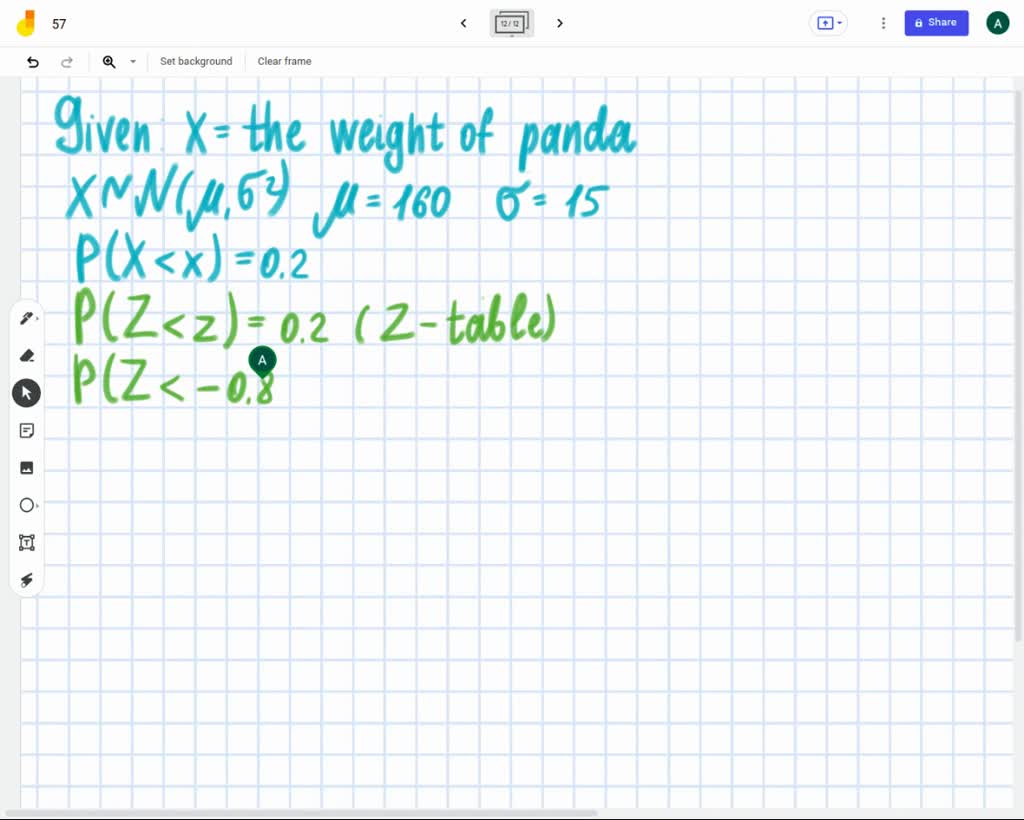 57
12 / 12
Share
A
Set background
Clear frame
Given: X = the weight of panda
X ~ N(μ, σ²) μ = 160 σ = 15
P(X < x) = 0.2
P(Z < z) = 0.2 (Z-table)
A
P(Z < -0.8